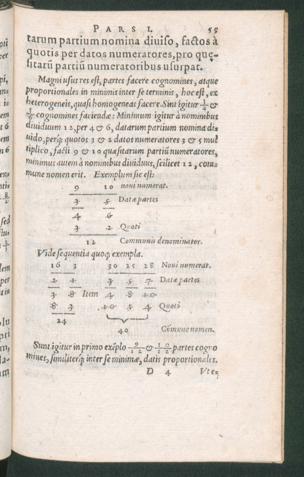 PARS I. 55
tarum partium nomina diuiso, factos à
quotis per datos numeratores, pro quę-
sitarũ partiũ numeratoribus usurpat.
Magni usus res est, partes facere cognomines, atque
proportionales in minimis inter se terminis, hoc est, ex
heterogeneis, quasi homogeneas facere. Sint igitur 3/4 &
5/6 cognomines faciendæ: Minimum igitur à nominibus
diuiduum 12, per 4 & 6, datarum partium nomina di-
uido, perq; quotos 3 & 2 datos numeratores 3 & 5 mul
tiplico, factiq; 9 & 10 quæsitarum partiũ numeratores,
minimus autem à nominibus diuiduus, scilicet 12, com-
mune nomen erit. Exemplum sic est:
9 10 noui numerat.
3 5 Datæ partes
4 6
3 2 Quoti
12 Communis denominator.
Vide sequentia quoq; exempla.
16 3 30 25 28 Noui numerat.
2 1 3 5 7 Datæ partes
3 8 Item 4 8 10
8 3 10 5 4 Quoti
24
40 Cõmune nomen.
Sunt igitur in primo exẽplo 9/12 & 10/12 partes cogno
mines, similiterq; inter se minimæ, datis proportionales.
D 4 Vteq;